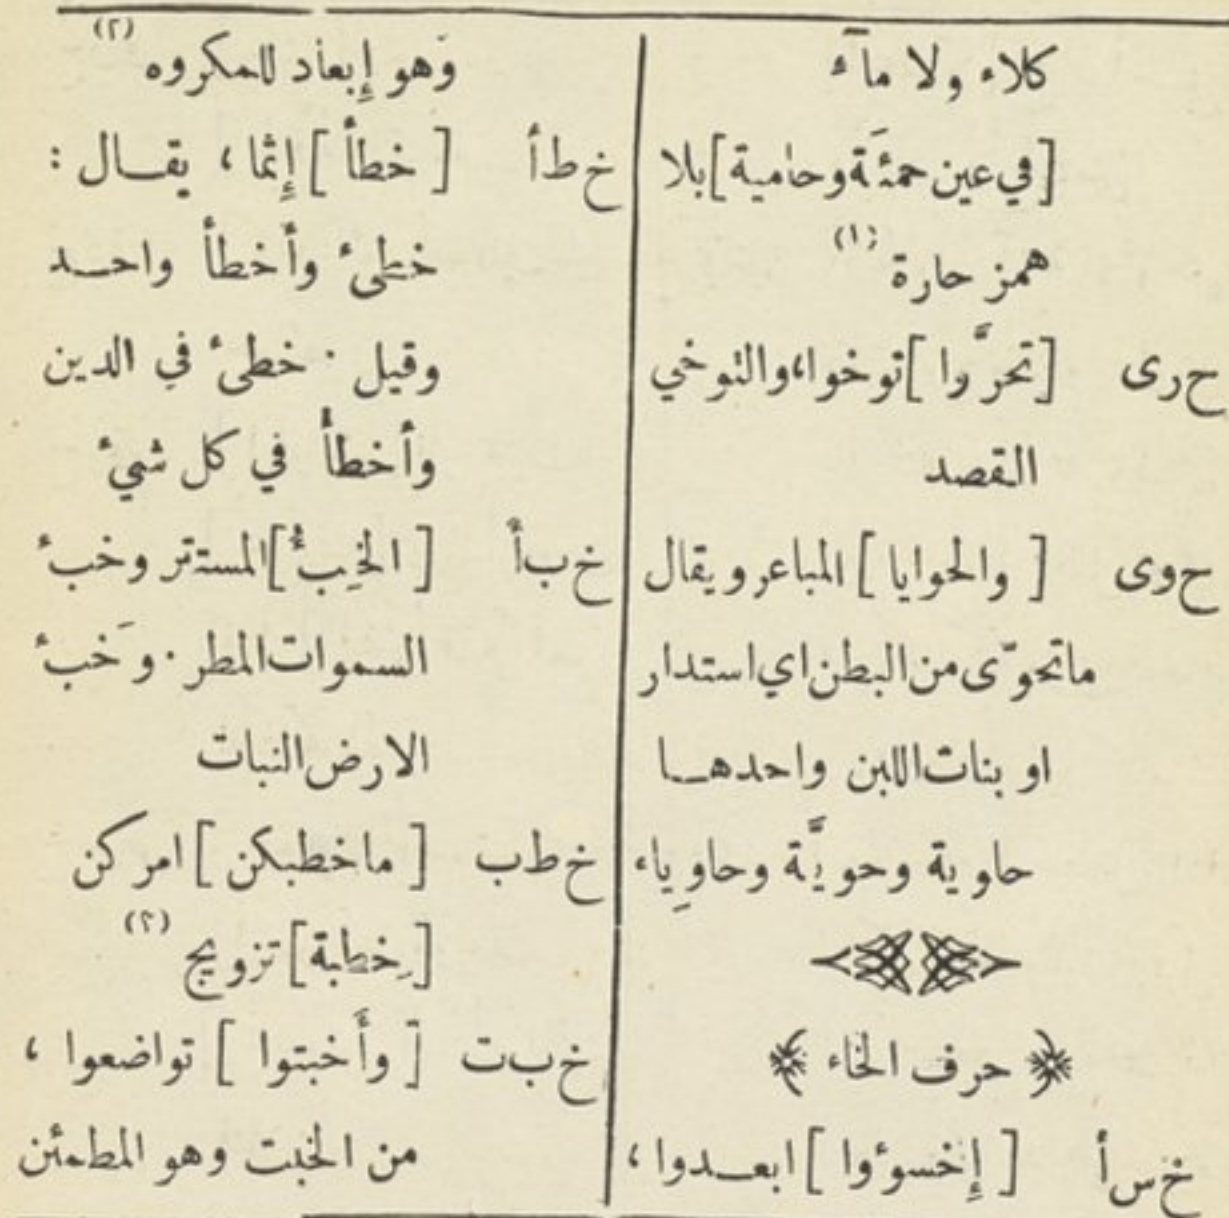 كلاء ولا مآء
[في عين حمئَة وحامية] بلا
همز حارة (١)
ح ر ى [تحرَّوا] توخوا، والتوخي
القصد
ح و ى [والحوايا] المباعر و يقال
ما تحوّى من البطن اي استدار
او بنات اللبن واحدهـا
حاوية وحويَّة وحاوِياء
﴿ حرف الخاء ﴾
خ س أ [إِخسوءوا] ابعـدوا ،
وَهو إِبعاد للمكروه (٢)
خ ط أ [خطأ] إِثما ، يقـال :
خطئ وأَخطأ واحـد
وقيل . خطئ في الدين
وأَخطأ في كل شيء
خ ب أ [الخِبءُ] المستتر وخبء
السموات المطر . وخَبء
الارض النبات
خ ط ب [ما خطبكن] امركن
[خِطبة] تزويج (٢)
خ ب ت [وأَخبتوا] تواضعوا ،
من الخبت وهو المطمئن